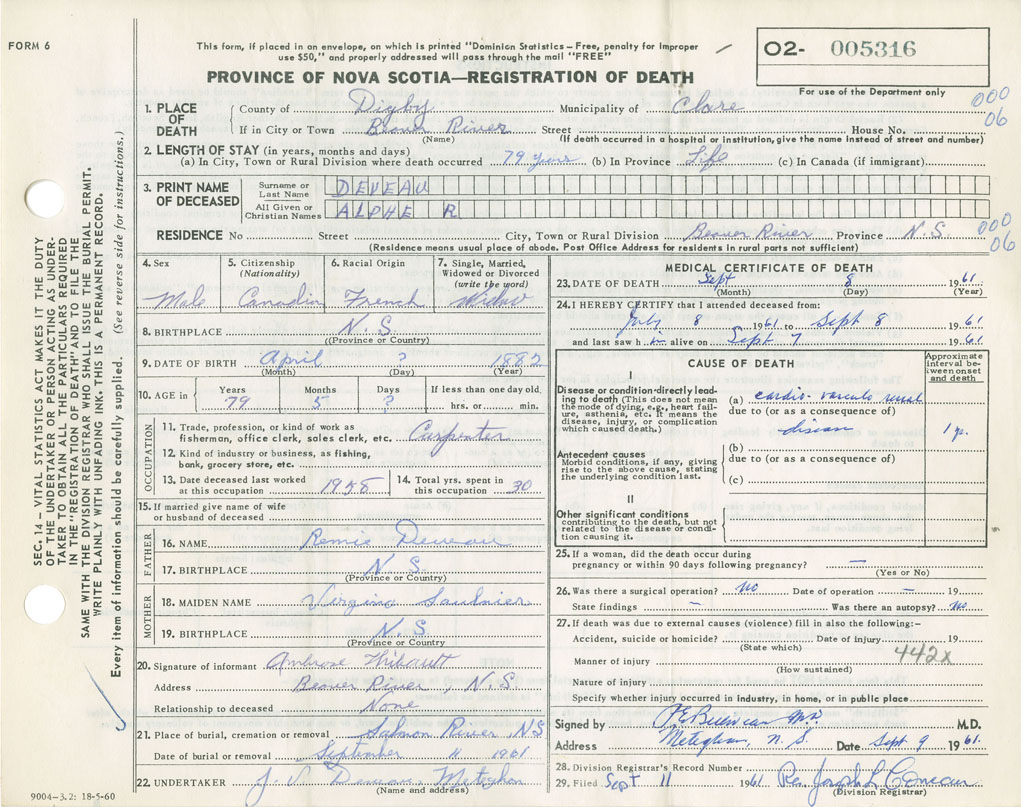 FORM 6
This form, if placed in an envelope, on which is printed "Dominion Statistics – Free, penalty for improper
use $50," and properly addressed will pass through the mail "FREE"
PROVINCE OF NOVA SCOTIA—REGISTRATION OF DEATH
02- 005316
For use of the Department only
000
06
SEC. 14 – VITAL STATISTICS ACT MAKES IT THE DUTY
OF THE UNDERTAKER OR PERSON ACTING AS UNDER-
TAKER TO OBTAIN ALL THE PARTICULARS REQUIRED
IN THE "REGISTRATION OF DEATH" AND TO FILE THE
SAME WITH THE DIVISION REGISTRAR WHO SHALL ISSUE THE BURIAL PERMIT.
WRITE PLAINLY WITH UNFADING INK. THIS IS A PERMANENT RECORD.
Every item of information should be carefully supplied. (See reverse side for instructions.)
1. PLACE OF DEATH
County of Digby Municipality of Clare
If in City or Town Beaver River Street House No.
(Name) (If death occurred in a hospital or institution, give the name instead of street and number)
2. LENGTH OF STAY (in years, months and days)
(a) In City, Town or Rural Division where death occurred 79 years (b) In Province Life (c) In Canada (if immigrant)
3. PRINT NAME OF DECEASED
Surname or Last Name DEVEAU
All Given or Christian Names ALPHE R
RESIDENCE No Street City, Town or Rural Division Beaver River Province N.S.
000
06
(Residence means usual place of abode. Post Office Address for residents in rural parts not sufficient)
4. Sex
Male
5. Citizenship
(Nationality)
Canadian
6. Racial Origin
French
7. Single, Married,
Widowed or Divorced
(write the word)
Widow
8. BIRTHPLACE N.S.
(Province or Country)
9. DATE OF BIRTH April ? 1882
(Month) (Day) (Year)
10. AGE in
Years Months Days If less than one day old,
79 5 ? hrs. or min.
OCCUPATION
11. Trade, profession, or kind of work as
fisherman, office clerk, sales clerk, etc. Carpenter
12. Kind of industry or business, as fishing,
bank, grocery store, etc.
13. Date deceased last worked
at this occupation 1958
14. Total yrs. spent in
this occupation 30
15. If married give name of wife
or husband of deceased
FATHER
16. NAME Remie Deveau
17. BIRTHPLACE N.S.
(Province or Country)
MOTHER
18. MAIDEN NAME Virgina Saulnier
19. BIRTHPLACE N.S.
(Province or Country)
20. Signature of informant Ambrose Thibault
Address Beaver River, N.S.
Relationship to deceased None
21. Place of burial, cremation or removal Salmon River NS
Date of burial or removal September 11 1961
22. UNDERTAKER J. V. Deveau, Meteghan
(Name and address)
9004–3.2: 18-5-60
MEDICAL CERTIFICATE OF DEATH
23. DATE OF DEATH Sept 8 1961
(Month) (Day) (Year)
24. I HEREBY CERTIFY that I attended deceased from:
July 8 1961 to Sept 8 1961
and last saw him alive on Sept 7 1961
CAUSE OF DEATH
Approximate
interval be-
tween onset
and death
I
Disease or condition directly lead-
ing to death (This does not mean
the mode of dying, e.g., heart fail-
ure, asthenia, etc. It means the
disease, injury, or complication
which caused death.)
(a) cardio-vasculo renal
due to (or as a consequence of)
disease 1 yr.
Antecedent causes
Morbid conditions, if any, giving
rise to the above cause, stating
the underlying condition last.
(b)
due to (or as a consequence of)
(c)
II
Other significant conditions
contributing to the death, but not
related to the disease or condi-
tion causing it.
25. If a woman, did the death occur during
pregnancy or within 90 days following pregnancy? —
(Yes or No)
26. Was there a surgical operation? No Date of operation – 19
State findings – Was there an autopsy? No
27. If death was due to external causes (violence) fill in also the following:–
Accident, suicide or homicide? Date of injury 19
(State which)
442x
Manner of injury
(How sustained)
Nature of injury
Specify whether injury occurred in industry, in home, or in public place
Signed by M.D.
Address Meteghan, N.S. Date Sept 9 1961.
28. Division Registrar's Record Number
29. Filed Sept 11 1961 Rev. Joseph L Comeau
(Division Registrar)